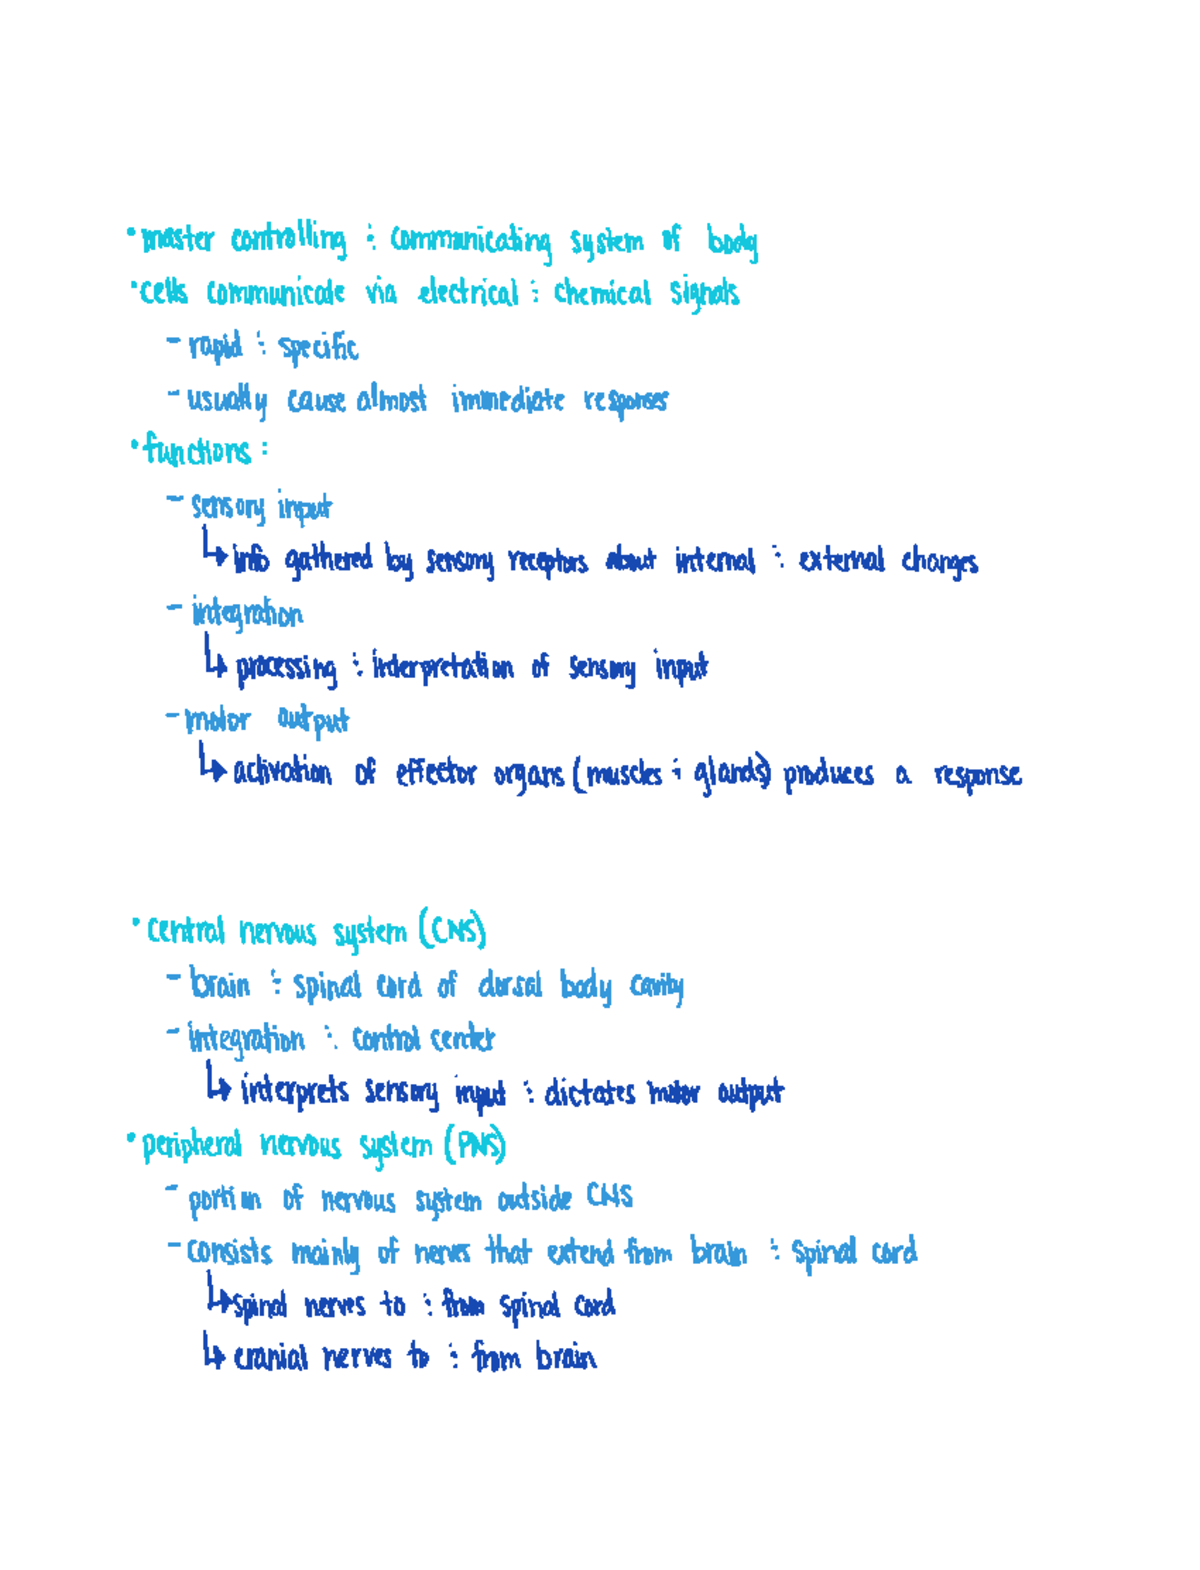 • master controlling & communicating system of body
• cells communicate via electrical & chemical signals
- rapid & specific
- usually cause almost immediate responses
• functions:
- sensory input
↳ info gathered by sensory receptors about internal & external changes
- integration
↳ processing & interpretation of sensory input
- motor output
↳ activation of effector organs (muscles & glands) produces a response
• central nervous system (CNS)
- brain & spinal cord of dorsal body cavity
- integration & control center
↳ interprets sensory input & dictates motor output
• peripheral nervous system (PNS)
- portion of nervous system outside CNS
- consists mainly of nerves that extend from brain & spinal cord
↳ spinal nerves to & from spinal cord
↳ cranial nerves to & from brain